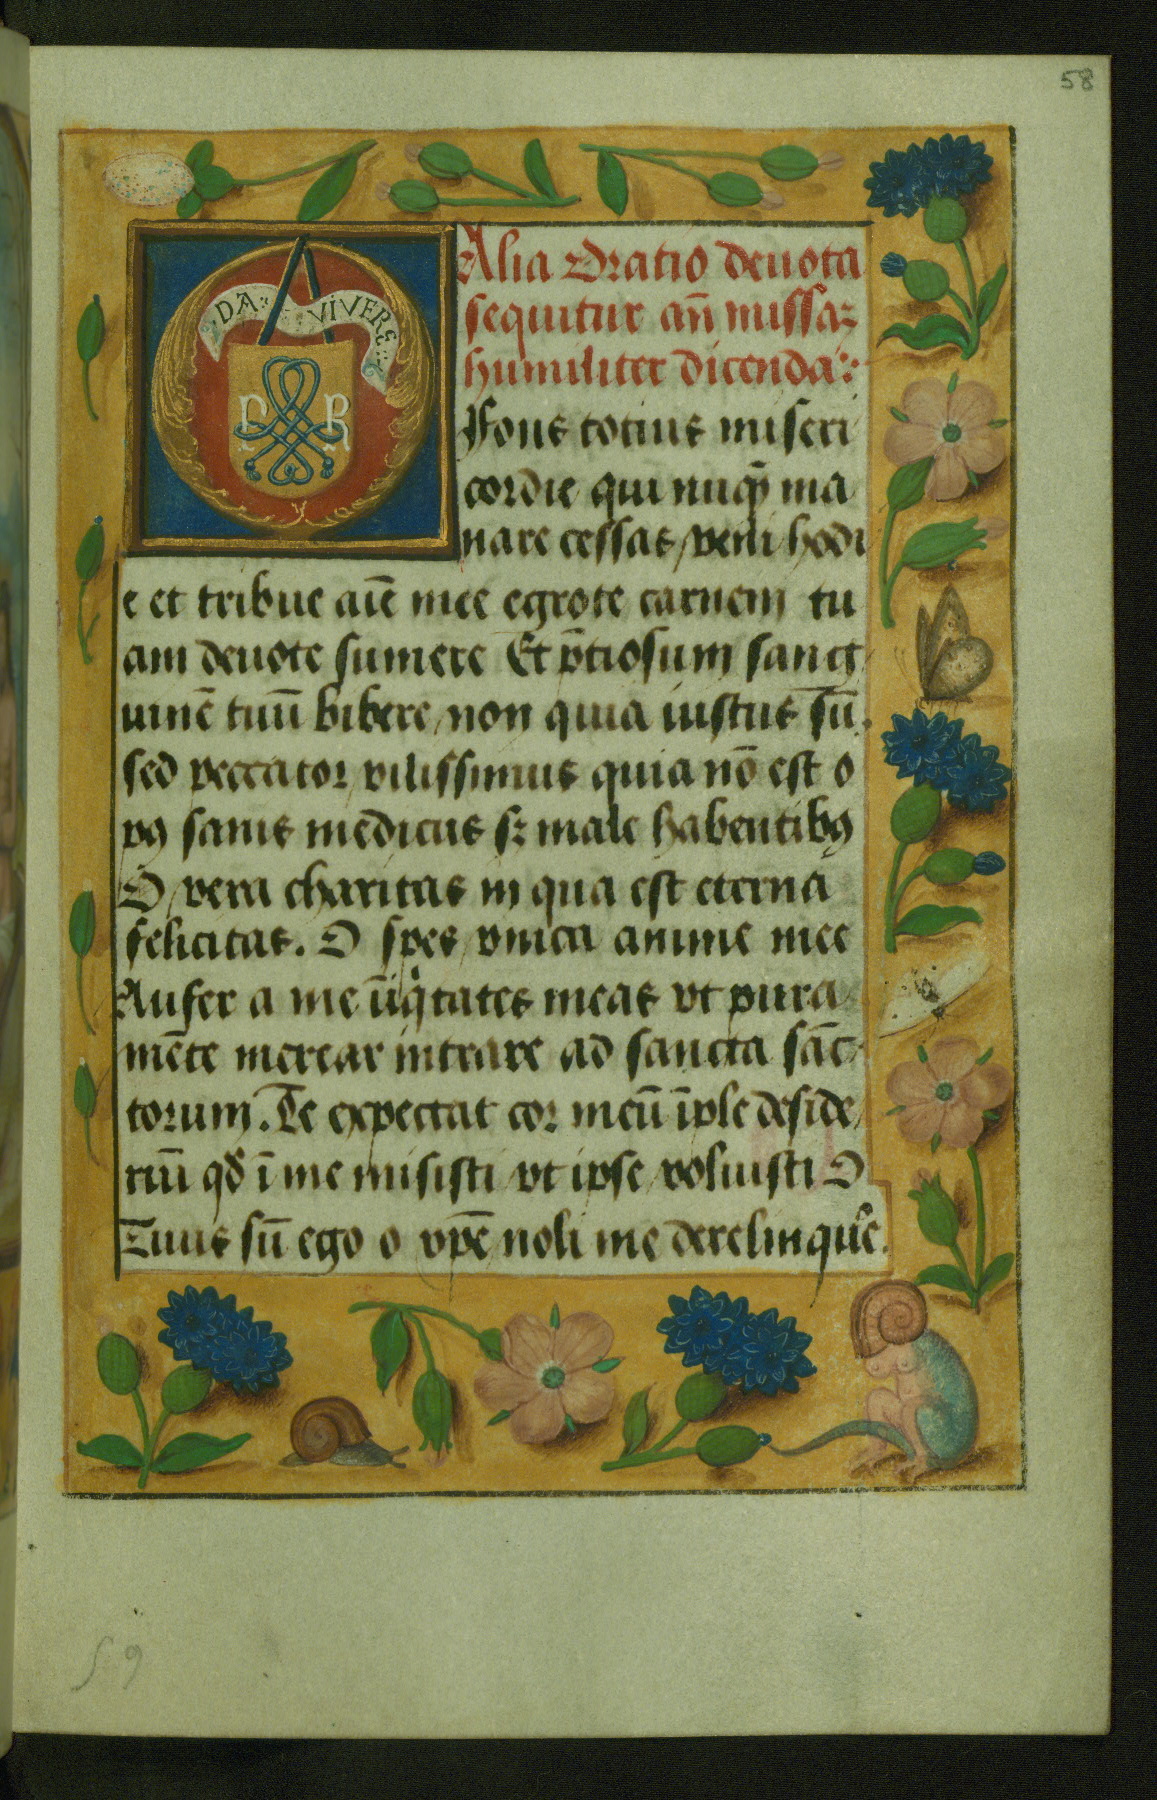 58
DA: VIVERE:
D R
Alia Oratio deuota
sequitur añ missaꝫ
humiliter dicenda:
Fons totius miseri
cordie qui nuq̄ꝫ ma
nare cessas / veni hodi
e et tribue aīe mee egrote carnem tu
am deuote sumere Et p̄tiosum sang
uinē tuū bibere / non quia iustus sū.
sed peccator vilissimus quia nō est o
pꝰ sanis medicus sꝫ male habentibꝰ
O vera charitas in qua est eterna
felicitas. O spes vnica anime mee
Aufer a me īiq̇tates meas vt pura
mēte merear intrare ad sancta sāc
torum. Te expectat cor meū īple deside
riū qď ī me misisti vt ipse voluisti O
Tuus sū ego o xp̄e noli me derelinquͤe.
59